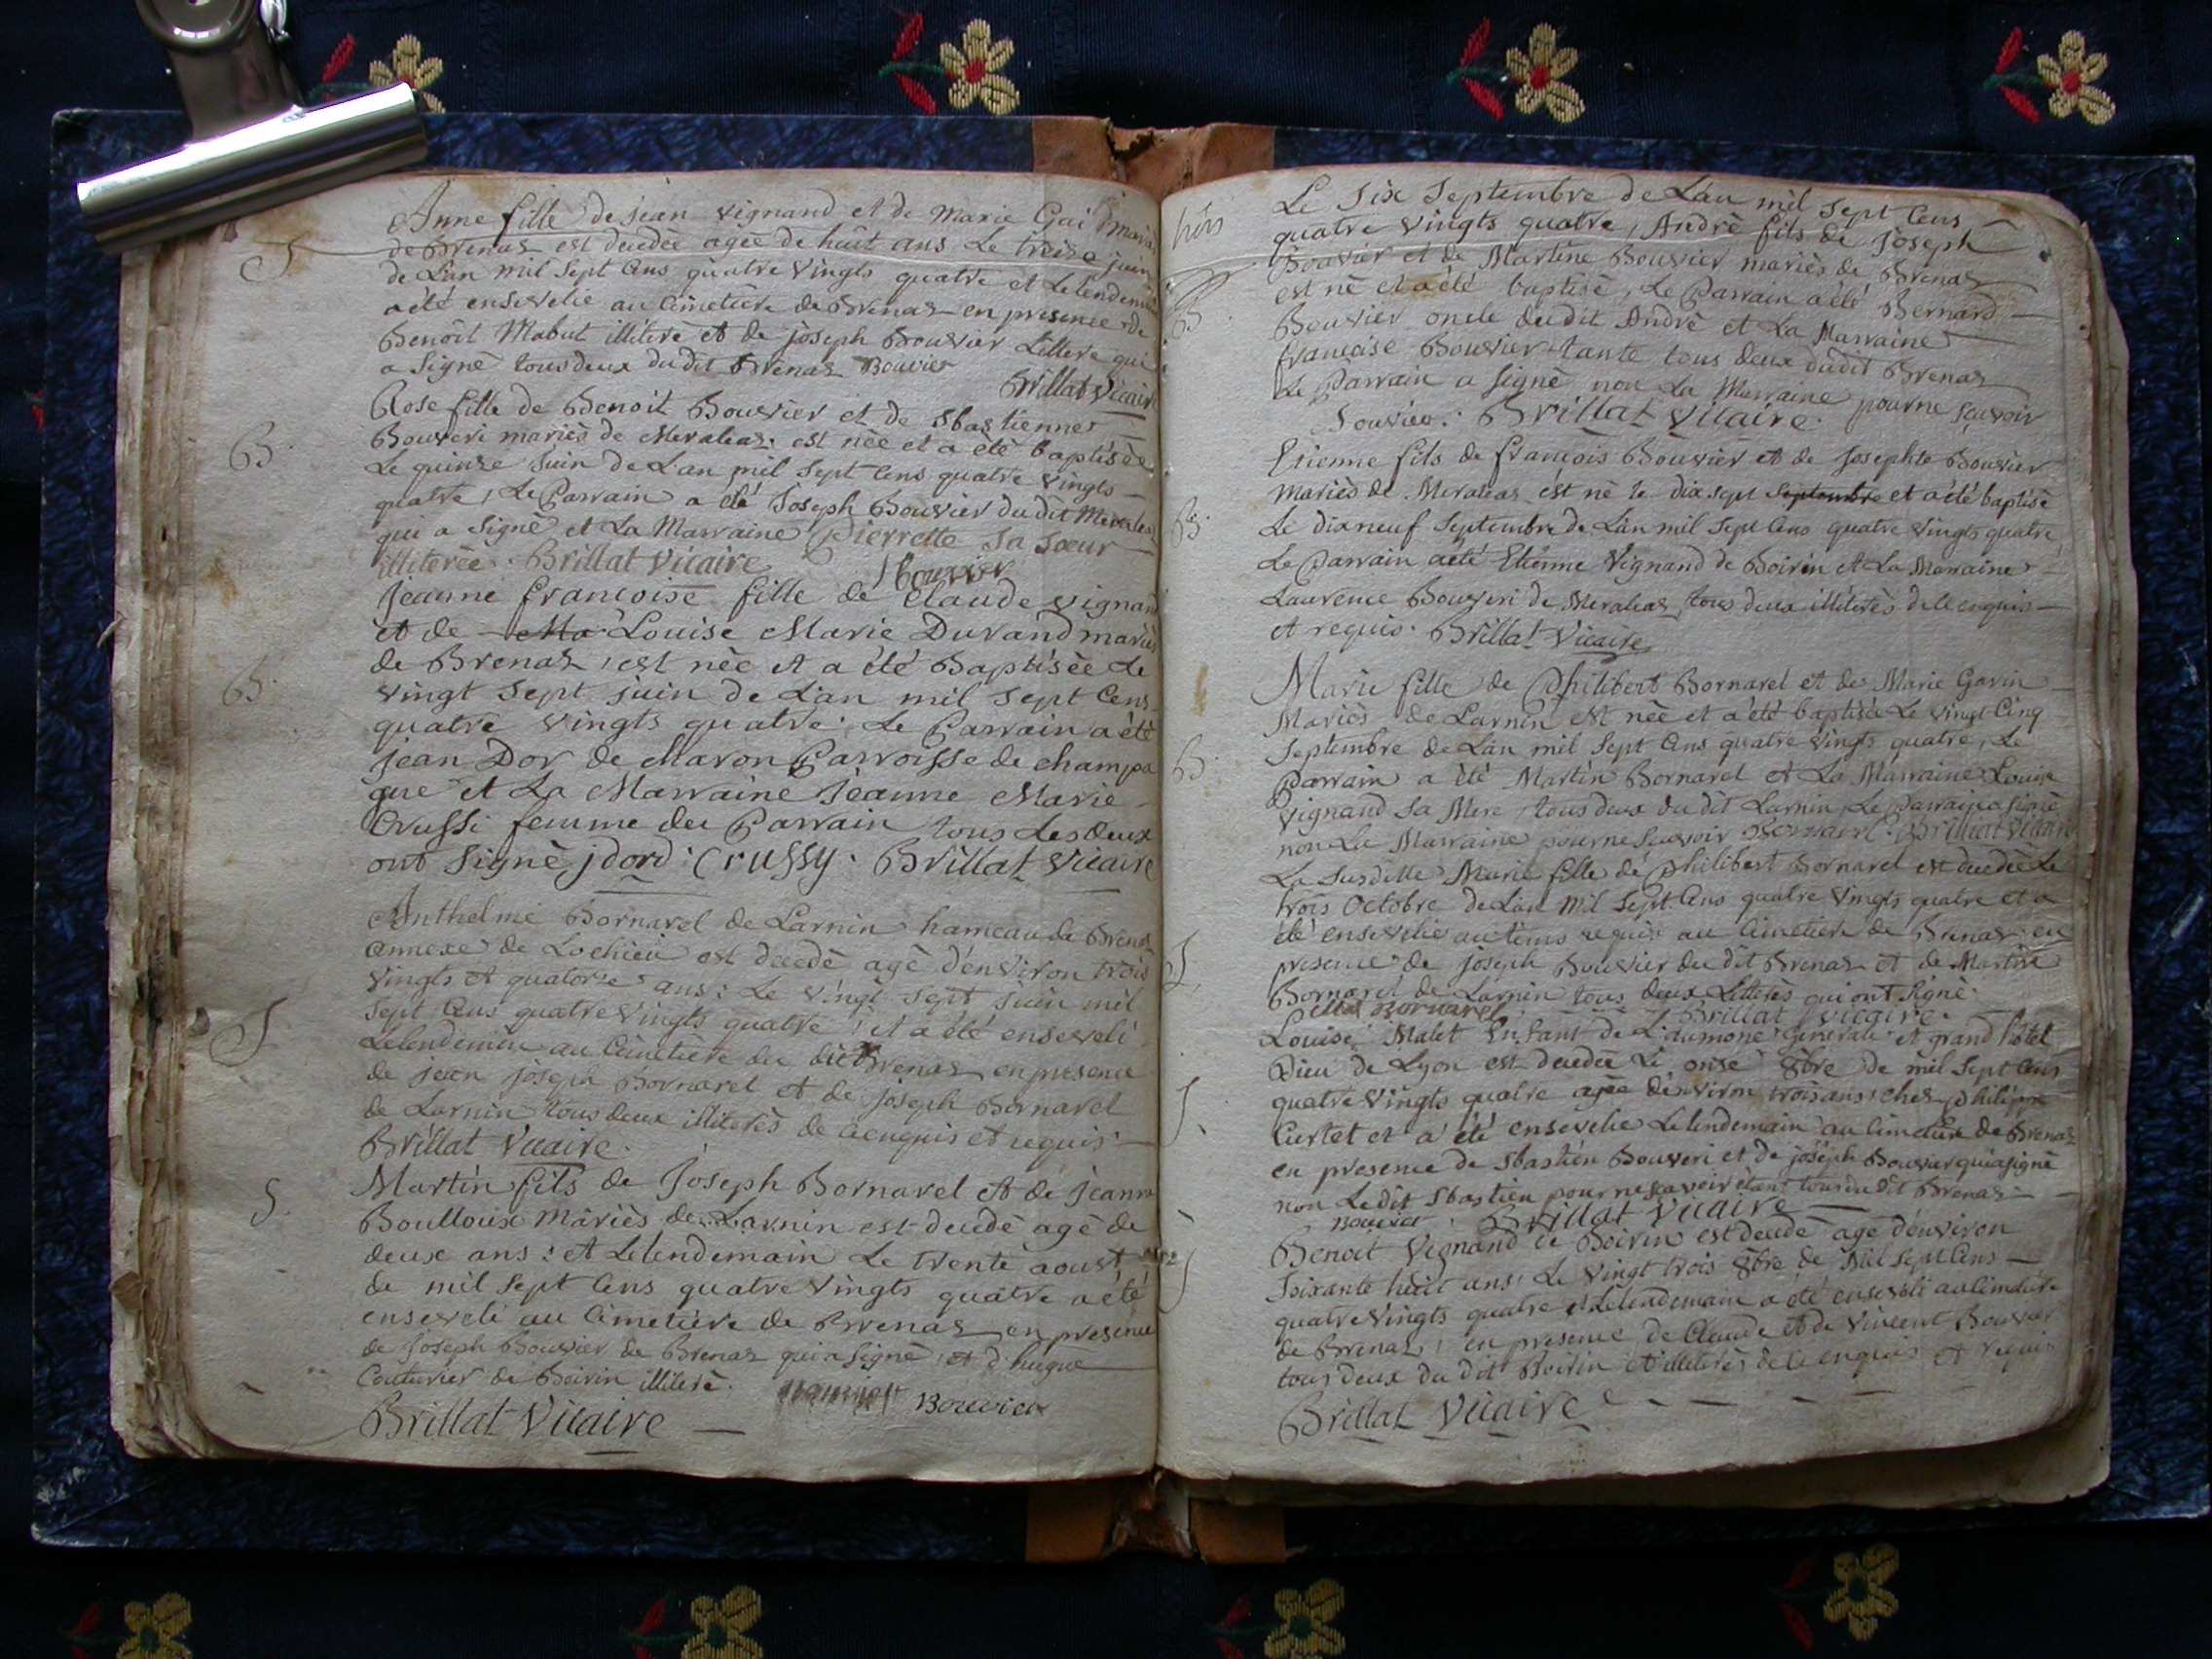 Anne fille de jean vignand et de Marie Gai mariés
S
de Brenaz est decedée agée de huit ans Le treize juin
de L'an mil Sept Cens quatre Vingts quatre et Lelendemain
a été ensevelie au Cimetiere de Brenaz en presence de
Benoit Mabut illiteré et de joseph Bouvier Litteré qui
a Signé tous deux dudit Brenaz Bouvier
Brillat Vicaire
Rose fille de Benoit Bouvier et de Sbastienne
B.
Bouveri mariés de Meraleaz est née et a été baptisée
Le quinze Juin de L'an mil Sept Cens quatre Vingts
quatre, Le Parrain a été Joseph Bouvier dudit
qui a Signé et La Marraine Pierrette Sa Soeur
illiterée. Brillat Vicaire
Bouvier
Jeanne francoise fille de Claude vignand
et de Ma Louise Marie Durand mariés
B.
de Brenaz, est née et a été Baptisée Le
vingt Sept juin de L'an mil Sept Cens
quatre Vingts quatre. Le Parrain a été
jean Dor de Paroisse de champa
gne et La Marraine Jeanne Marie
Crussi femme du Parrain tous Les deux
ont Signé jdord. Crussy. Brillat Vicaire
Anthelme Bornarel de Larnin hameau de Brenaz
annexe de Lochieu est decedé agé d'environ trois
Vingts et quatorze ans: Le Vingt Sept Juin mil
S
Sept Cens quatre Vingts quatre; il a été enseveli
Lelendemain au Cimetiere du dit Brenaz en presence
de jean joseph Bornarel et de joseph Bornarel
de Larnin tous deux illiterés de ce enquis et requis.
Brillat Vicaire.
S.
Martin fils de Joseph Bornarel et de jeanne
Boulloux Mariés de Larnin est decedé agé de
deux ans: et Lelendemain Le trente aoust
de mil Sept Cens quatre Vingts quatre a été
enseveli au Cimetiere de Brenaz en presence
de Joseph Bouvier de Brenaz qui a Signé, et d'hugue
Couturier de Boirin illiteré. Bouvier
Brillat Vicaire
Le Six Septembre de L'an mil Sept Cens
quatre Vingts quatre, André fils de Joseph
Bouvier et de Martine Bouvier mariés de Brenaz
B.
est né et a été baptisé, Le Parrain a été Bernard
Bouvier oncle dudit André et La Marraine
francoise Bouvier tante tous deux dudit Brenaz
Le Parrain a Signé non La Marraine pour ne Scavoir
Brillat Vicaire.
Etienne fils de francois Bouvier et de Josephte Bouvier
Mariés de Meraleaz est né le dix sept Septembre et a été baptisé
B.
Le dixneuf Septembre de L'an mil Sept Cens quatre Vingts quatre,
Le Parrain a été Etienne Vignand de Boirin et La Marraine
Laurence Bouveri de Meraleaz tous deux illiterés de ce enquis
et requis. Brillat Vicaire
Marie fille de Philibert Bornarel et de Marie Gavin
Mariés de Larnin est née et a été baptisée Le Vingt Cinq
B.
Septembre de L'an mil Sept Cens quatre Vingts quatre, Le
Parrain a été Martin Bornarel et La Marraine Louise
Vignand Sa Mere, tous deux du dit Larnin, Le Parrain a Signé
non La Marraine pour ne Scavoir Bornarel. Brillat Vicaire
La Susditte Marie fille de philibert Bornarel est decedée Le
trois Octobre de L'an Mil Sept Cens quatre Vingts quatre et a
S.
été ensevelie au tems requis au Cimetiere de Brenaz en
presence de joseph Bouvier du dit Brenaz et de Martin
Bornarel de Larnin tous deux Litterés qui ont Signé.
Bornarel Brillat Vicaire.
Louise Malet Enfant de L'aumone Generale et grand hotel
Dieu de Lyon est decedée Le onse 8bre de mil Sept Cens
S.
quatre Vingts quatre agée d'environ trois ans, ches philippe
Curtet et a été ensevelie Lelendemain au Cimetiere de Brenaz
en presence de Sbastien Bouveri et de joseph Bouvier qui a signé
non Ledit Sbastien pour ne scavoir étant tous du dit Brenaz
Bouvier Brillat Vicaire
Benoit Vignand de Boirin est decedé agé d'environ
S
Soixante huit ans, Le Vingt trois 8bre de Mil Sept Cens
quatre Vingts quatre et Lelendemain a été enseveli au Cimetiere
de Brenaz, en presence de Claude et de Vincent Bouvier
tous deux du dit Boirin et illiterés de ce enquis et requis
Brillat Vicaire